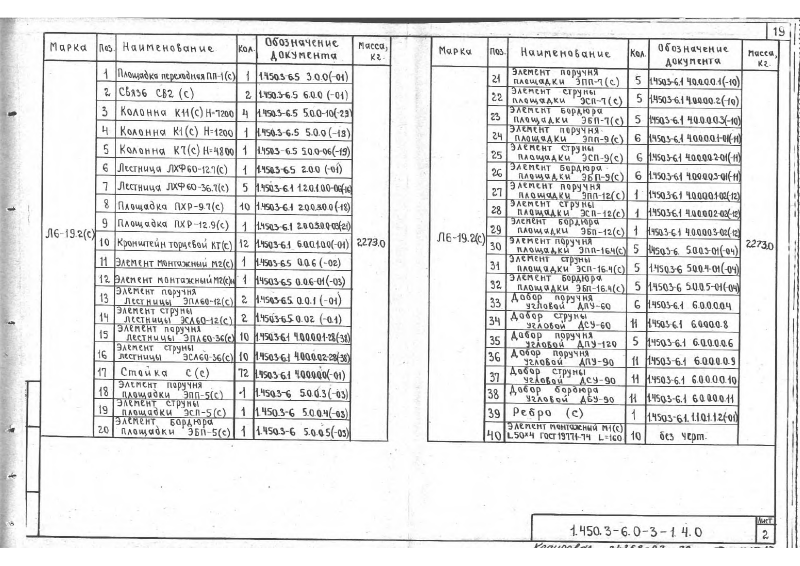 19
Марка Поз. Наименование Кол. Обозначение документа Масса, кг.
Л6-19.2(с) 2273.0
1 Площадка переходная ПП-1(с) 1 1.450.3-6.5 3.0.0(-01)
2 Связь СВ2 (с) 2 1.450.3-6.5 6.0.0 (-01)
3 Колонна К11(с) Н=7200 4 1.450.3-6.5 5.0.0-10(-23)
4 Колонна К1(с) Н=1200 1 1.450.3-6.5 5.0.0 (-13)
5 Колонна К7(с) Н=4800 1 1.450.3-6.5 5.0.0-06(-19)
6 Лестница ЛХФ60-12.7(с) 1 1.450.3-6.5 2.0.0 (-01)
7 Лестница ЛХФ60-36.7(с) 5
8 Площадка ПХР-9.7(с) 10
9 Площадка ПХР-12.9(с) 1
10 Кронштейн торцевой КТ(с) 12
11 Элемент монтажный М2(с) 1 1.450.3-6.5 0.0.6 (-02)
12 Элемент монтажный 1 1.450.3-6.5 0.0.6-01(-03)
13 Элемент поручня
лестницы ЭПЛ60-12(с) 2 1.450.3-6.5 0.0.1 (-01)
14 Элемент струны
лестницы ЭСЛ60-12(с) 2 1.450.3-6.5 0.0.2 (-01)
15 Элемент поручня
лестницы ЭПЛ60-36(с) 10
16 Элемент струны
лестницы ЭСЛ60-36(с) 10
17 Стойка С(с) 72
18 Элемент поручня
площадки ЭПП-5(с) 1 1.450.3-6 5.0.0.3(-03)
19 Элемент струны
площадки ЭСП-5(с) 1 1.450.3-6 5.0.0.4(-03)
20 Элемент бордюра
площадки ЭБП-5(с) 1 1.450.3-6 5.0.0.5(-03)
Марка Поз. Наименование Кол. Обозначение документа Масса, кг.
Л6-19.2(с) 2273.0
21 Элемент поручня
площадки ЭПП-7(с) 5 1.450.3-6.1 4.0.0.0.1(-10)
22 Элемент струны
площадки ЭСП-7(с) 5 1.450.3-6.1 4.0.0.0.2(-10)
23 Элемент бордюра
площадки ЭБП-7(с) 5 1.450.3-6.1 4.0.0.0.3(-10)
24 Элемент поручня
площадки ЭПП-9(с) 6 1.450.3-6.1 4.0.0.0.1-01(-11)
25 Элемент струны
площадки ЭСП-9(с) 6 1.450.3-6.1 4.0.0.0.2-01(-11)
26 Элемент бордюра
площадки ЭБП-9(с) 6 1.450.3-6.1 4.0.0.0.3-01(-11)
27 Элемент поручня
площадки ЭПП-12(с) 1 1.450.3-6.1 4.0.0.0.1-02(-12)
28 Элемент струны
площадки ЭСП-12(с) 1 1.450.3-6.1 4.0.0.0.2-02(-12)
29 Элемент бордюра
площадки ЭБП-12(с) 1 1.450.3-6.1 4.0.0.0.3-02(-12)
30 Элемент поручня
площадки ЭПП-16.4(с) 5 1.450.3-6. 5.0.0.3-01(-04)
31 Элемент струны
площадки ЭСП-16.4(с) 5 1.450.3-6 5.0.0.4-01(-04)
32 Элемент бордюра
площадки ЭБП-16.4(с) 5 1.450.3-6 5.0.0.5-01(-04)
33 Добор поручня
угловой ДПУ-60 6 1.450.3-6.1 6.0.0.0.4
34 Добор струны
угловой ДСУ-60 11 1.450.3-6.1 6.0.0.0.8
35 Добор поручня
угловой ДПУ-120 5 1.450.3-6.1 6.0.0.0.6
36 Добор поручня
угловой ДПУ-90 11 1.450.3-6.1 6.0.0.0.9
37 Добор струны
угловой ДСУ-90 11 1.450.3-6.1 6.0.0.0.10
38 Добор борбюра
угловой ДБУ-90 11 1.450.3-6.1 6.0.0.0.11
39 Ребро (с) 1 1.450.3-6.1. 1.1.0.1.2(-01)
40 Элемент монтажный М1(с)
L50×4 ГОСТ 19771-74 L=160 10 без черт.
1.450.3-6.0-3-1.4.0
Лист
2
Копировал